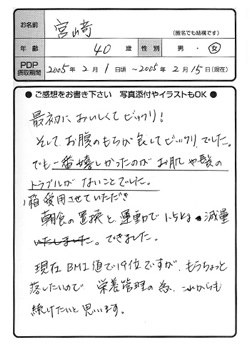 お名前
宮﨑
(匿名でも結構です)
年齢 40歳 性別 男・女
PDP 摂取期間 2005年2月1日頃〜2005年2月15日(現在)
●ご感想をお書き下さい 写真添付やイラストもOK●
最初においしくてビックリ!
そしてお腹のもちが良くてビックリでした。
でも一番嬉しかったのが お肌や髪の
トラブルがないことでした。
1箱使用させていただき
朝食の置換と運動で1.5kg減量
できました。
現在BMI値で19位ですが、もうちょっと
落したいので 栄養管理の為、これからも
続けたいと思います。